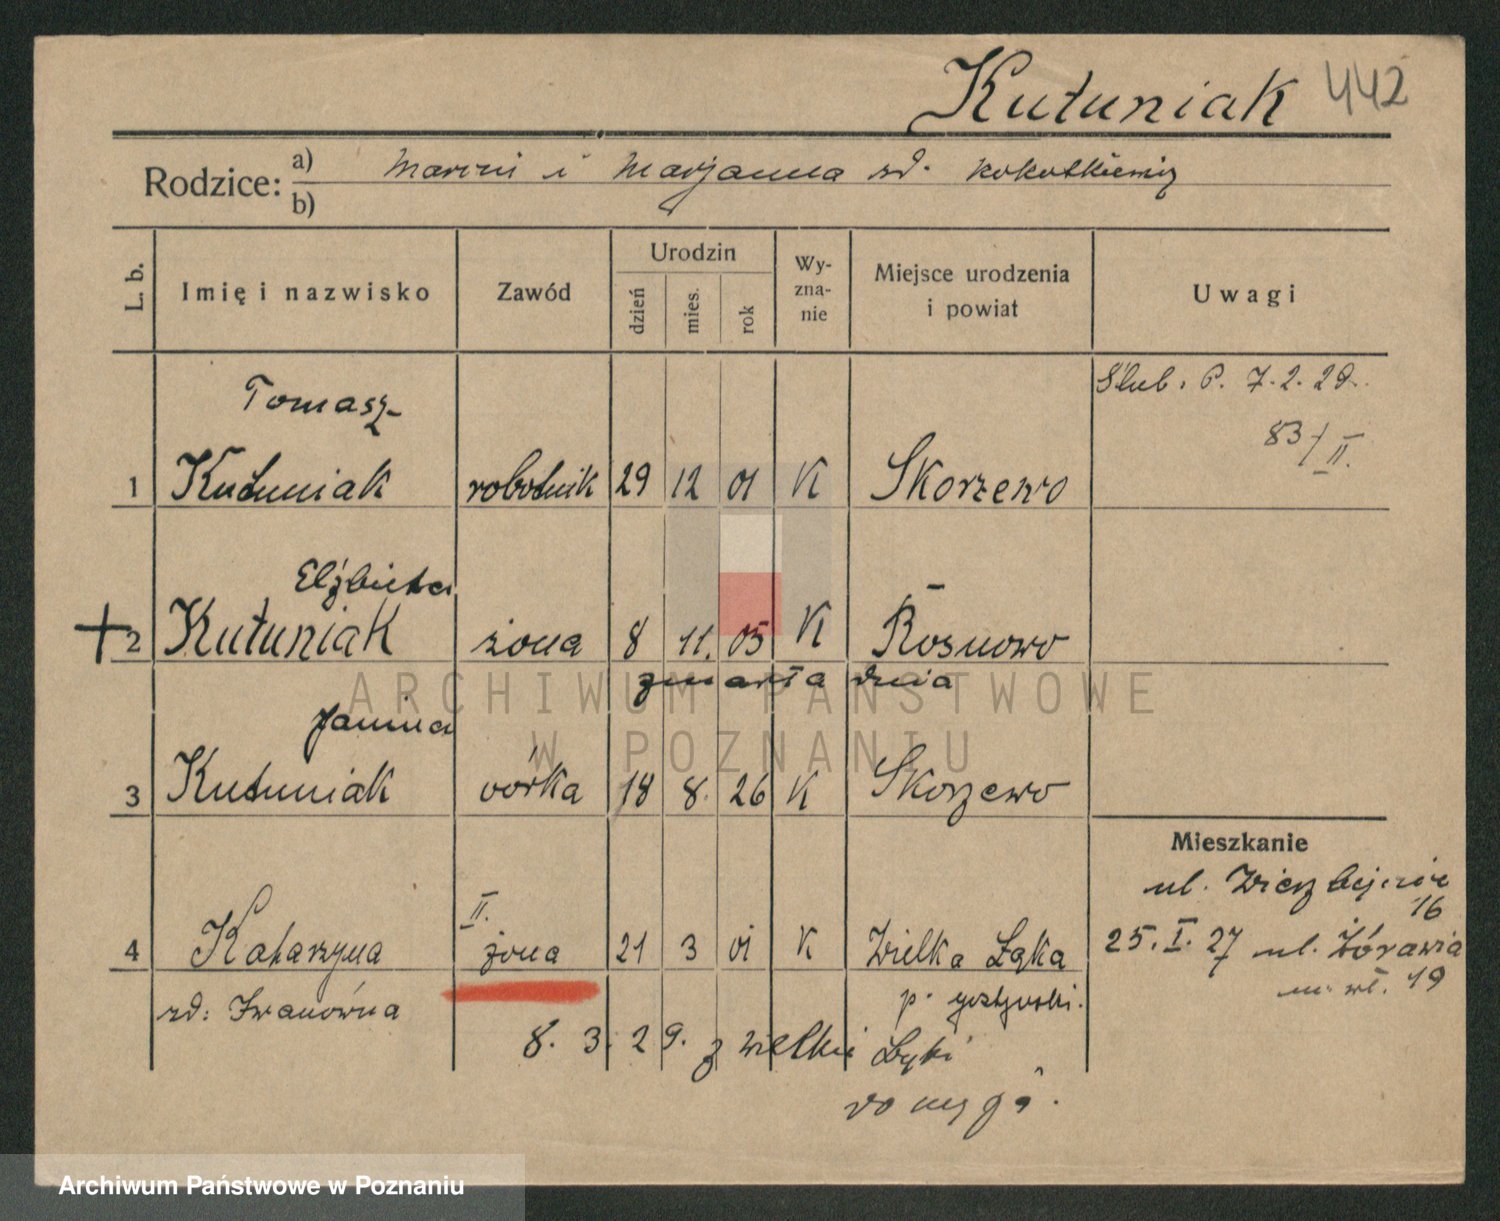 Kutuniak 442
Rodzice: a) Marcin i Marjanna rd.
b)
L. b. Imię i nazwisko Zawód Urodzin dzień mies. rok Wy-zna-nie Miejsce urodzenia i powiat Uwagi
Ślub: P. 7.2.29.
83/II.
Tomasz
1 Kutuniak robotnik 29 12 01 K Skorzewo
Elżbieta
+2 Kutuniak żona 8 11. 05 K Rosnowo
zmarła dnia
Janina
3 Kutuniak córka 18 8. 26 K Skorzewo
Mieszkanie
ul. 16
25. I. 27 ul. Żórawia
m. wł. 19
II.
4 Katarzyna żona 21 3 01 K Wielka Łąka
rd: Iwanówna p. gostyński.
8. 3. 29. z Wielki Łąki
do męża.
ARCHIWUM PAŃSTWOWE
W POZNANIU
Archiwum Państwowe w Poznaniu